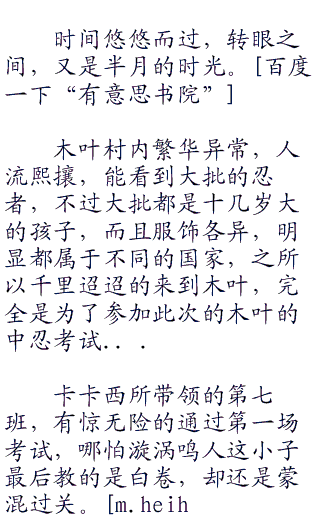 时间悠悠而过，转眼之
间，又是半月的时光。[百度
一下“有意思书院”]
木叶村内繁华异常，人
流熙攘，能看到大批的忍
者，不过大批都是十几岁大
的孩子，而且服饰各异，明
显都属于不同的国家，之所
以千里迢迢的来到木叶，完
全是为了参加此次的木叶的
中忍考试．．．
卡卡西所带领的第七
班，有惊无险的通过第一场
考试，哪怕漩涡鸣人这小子
最后教的是白卷，却还是蒙
混过关。[m.heih